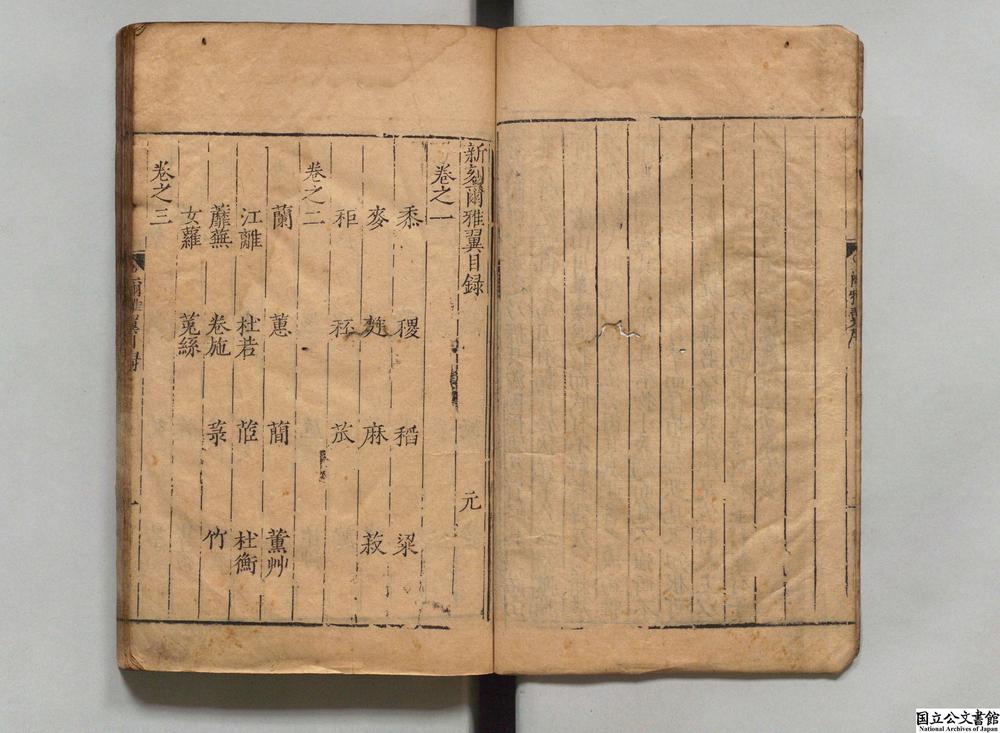 新刻爾雅翼目録 元
卷之一
黍 稷 稻 粱
麥 麻 菽
秬 秠
卷之二
蘭 蕙 蕳 薰艸
江蘺 杜若 茝 杜衡
蘪蕪 卷施 菉 竹
女蘿 菟絲
卷之三
爾雅翼目録 一
国立公文書館
National Archives of Japan